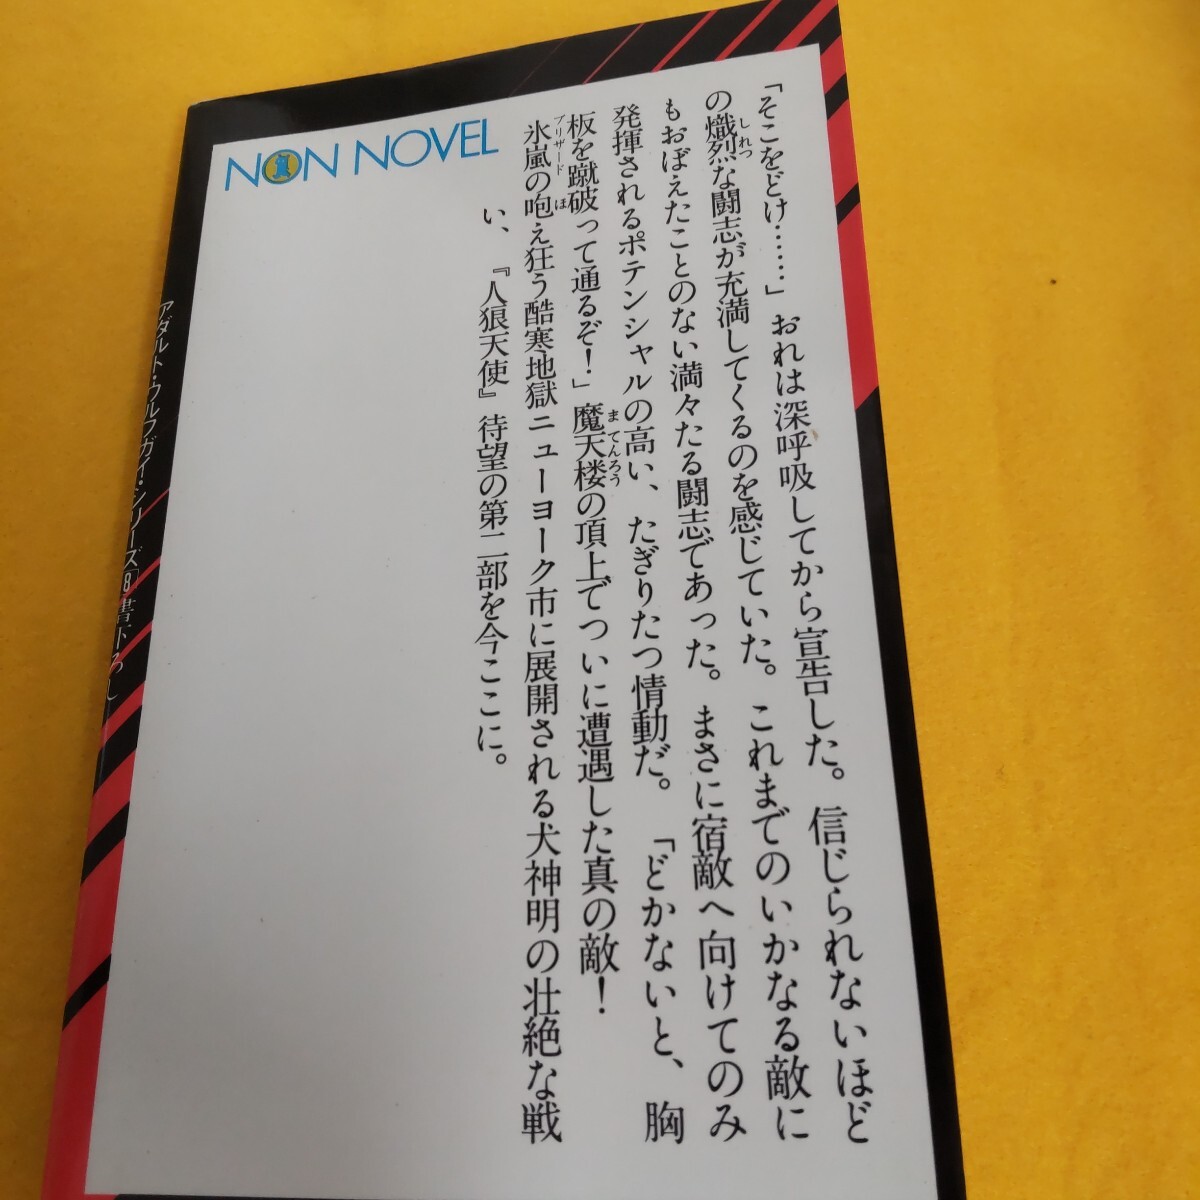 「そこをどけ……」おれは深呼吸してから宣告した。信じられないほど
の熾烈な闘志が充満してくるのを感じていた。これまでのいかなる敵に
もおぼえたことのない満々たる闘志であった。まさに宿敵へ向けてのみ
発揮されるポテンシャルの高い、たぎりたつ情動だ。「どかないと、胸
板を蹴破って通るぞ！」魔天楼の頂上でついに遭遇した真の敵！
氷嵐の咆え狂う酷寒地獄ニューヨーク市に展開される犬神明の壮絶な戦
い、『人狼天使』待望の第二部を今ここに。
しれつ
まてんろう
ブリザード
ほ
NON NOVEL
アダルト・ウルフガイ・シリーズ8 書下ろし